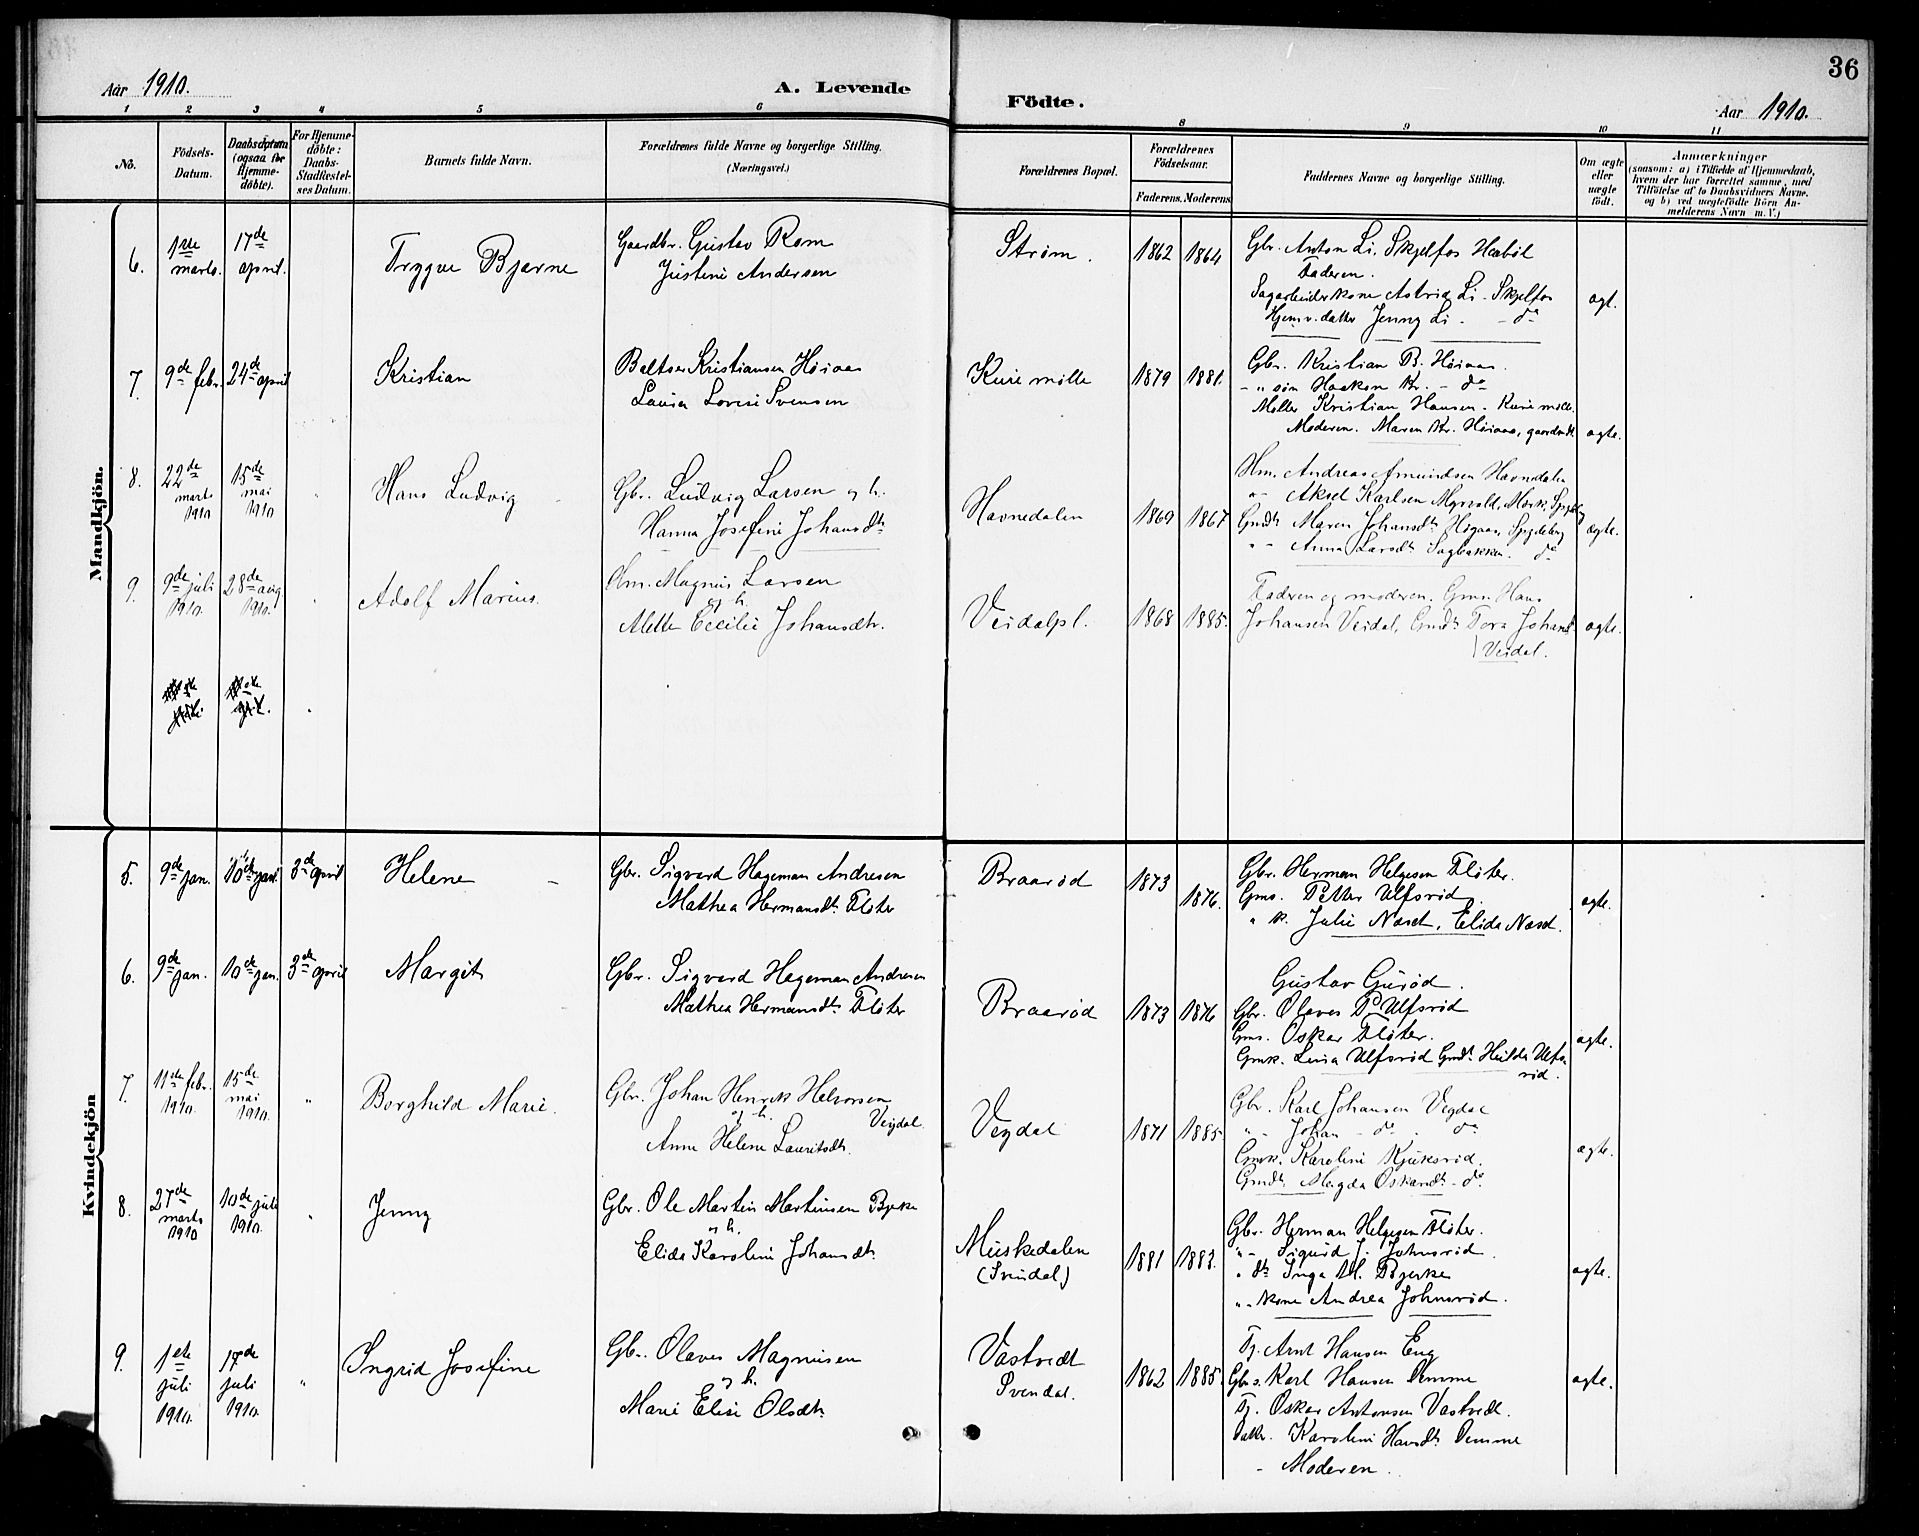 36
Aar 1910.
A. Levende
Födte.
Aar 1910.
1 2 3 4 5 6 8 9 10 11
No.
Födsels-
Datum.
Daabsdatum
(ogsaa for
Hjemme-
döbte).
For Hjemme-
döbte:
Daabs-
Stadfæstel-
ses Datum.
Barnets fulde Navn.
Forældrenes fulde Navne og borgerlige Stilling.
(Næringsvei.)
Forældrenes Bopæl.
Forældrenes
Födselsaar.
Faderens. Moderens.
Faddernes Navne og borgerlige Stilling.
Om ægte
eller
uægte
födt.
Anmærkninger
(saasom: a) i Tilfælde af Hjemmedaab,
hvem der har forrettet samme, med
Tilföielse af to Daabsvidners Navne.
og b) ved uægtefödte Börn An-
melderens Navn m. V.)
Mandkjön.
6.
1ste
marts.
17de
april.
Trygve Bjarne
Gaardbr. Gustav Rom
Justine Andersen
Strøm.
1862 1864
Gbr. Anton Li, Skjelfos Habøl
Faderen.
Sagarbeiderkone Astrid Li - Skjelfos
Hjemv. datter Jenny Li - - do
ægt.
7.
9de febr.
24de april
Kristian
Baltser Kristiansen Høiaas
Laura Lovise Svensen
Kure mølle
1879 1881.
Gbr. Kristian B. Høiaas.
- " søn Haakon Kr. - do
Møller Kristian Hansen - Kure mølle.
Moderen. Maren Kr. Høiaas, gaardmdt.
ægte.
8.
22de
marts
1910
15de
mai
1910
Hans Ludvig
Gbr. Ludvig Larsen og h.
Hanna Josefine Johansdtr
Havnedalen
1869 1867
Hm. Andreas Amundsen Havndalen
" - Aksel Karlsen Myrvold, Mørk, Spydeberg
Gmdt. Maren Johansdtr Høgaas, Spydeberg
" - Anna Larsdtr Sagbakken. do
ægte.
9.
9de juli
1910.
28de aug.
1910.
Adolf Marius.
Hm. Magnus Larsen
og h.
Alette Cecilie Johansdtr.
Veidalpl.
1868 1885.
Faderen og moderen. Gmn. Hans
Johansen Veidal, Gmdt. Tora Johansd.
Veidal.
ægte.
Kvindekjön
5.
9de jan.
10de jan.
3de april
Helene
Gbr. Sigvard Hageman Andresen
Mathea Hermansdtr. Fløter
Braarød
1873
1876.
Gbr. Herman Helgesen Fløter.
Gms. Petter Ulfsrød
" k. Julie Næset, Elida Næset.
ægte.
6.
9de jan.
10de jan.
3de april
Margit
Gbr. Sigvard Hageman Andresen
Mathea Hermansdtr. Fløter
Braarød
1873 1876
Gustav Gurød.
Gbr. Olaves P. Ulfsrød
Gms. Oskar Fløter.
Gmk. Lina Ulfsrød Gmdt. Hulda Ulfs-
rød.
ægte.
7.
11de febr.
1910.
15de
mai
1910.
"
Borghild Marie.
Gbr. Johan Henrik Halvorsen
og h. Veydal.
Anne Helene Lauritsdtr.
Veydal
1871 1885.
Gbr. Karl Johansen Veydal
" - Johan - do - do
Gmk. Karoline Kjuksrød.
Gmdt. Magda Oskarsdtr. - do
ægte.
8.
27de
marts
1910
10de juli
1910.
Jenny
Gbr. Ole Martin Martinsen Bjerke
og h.
Elida Karoline Johansdtr.
Muskedalen
(Svindal)
1881 1883.
Gbr. Herman Helgesen Fløter.
" - Sigurd J. Johnsrød.
" dtr Inga M. Bjerke
" - kone Andrea Johnsrød.
ægte.
9.
1ste
juli
1910.
17de
juli
1910.
"
Ingrid Josefine
Gbr. Olaves Magnusen
og h.
Marie Elise Olsdtr.
Vastvedt
Svendal.
1862 1885.
Tj. Arnt Hansen Eng
Gbs. Karl Hansen Demme
Tj. Oskar Antonsen Vastvedt.
Datter. Karoline Hansdtr. Demme
- Moderen.
ægte.